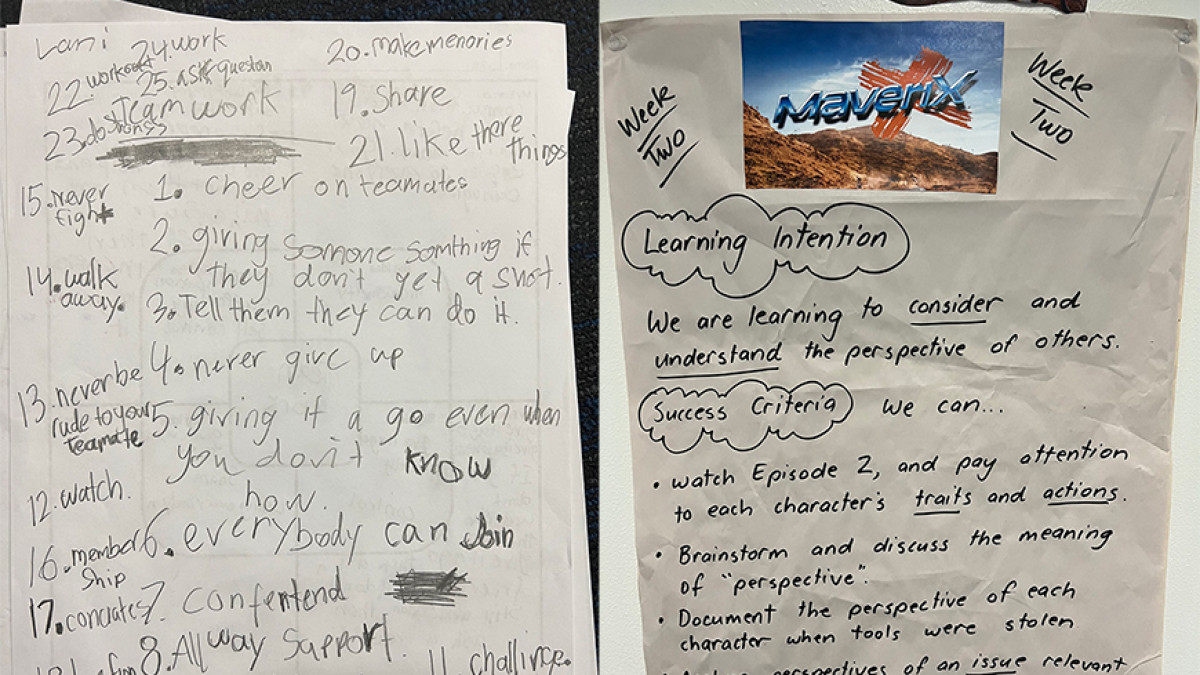 Lani
24. work
20. make menories
22. workout
25. ask questan
23. do
Teamwork
19. Share
21. like there
things
15. never
fight
1. cheer on teamates
2. giving Somone somthing if
they don't get a shot.
14. walk
away.
3. Tell them they can do it.
4. never give up
13. never be
rude to your
teamate
5. giving it a go even when
you don't know
how.
12. watch.
6. everybody can Join
16. member
Ship
7. confentend
17.
8. All way Support.
11. challinge.
Week
Two
MaveriX
Week
Two
Learning Intention
We are learning to consider and
understand the perspective of others.
Success Criteria We can...
• watch Episode 2, and pay attention
to each character's traits and actions.
• Brainstorm and discuss the meaning
of "perspective".
• Document the perspective of each
character when tools were stolen
perspectives of an issue relevant